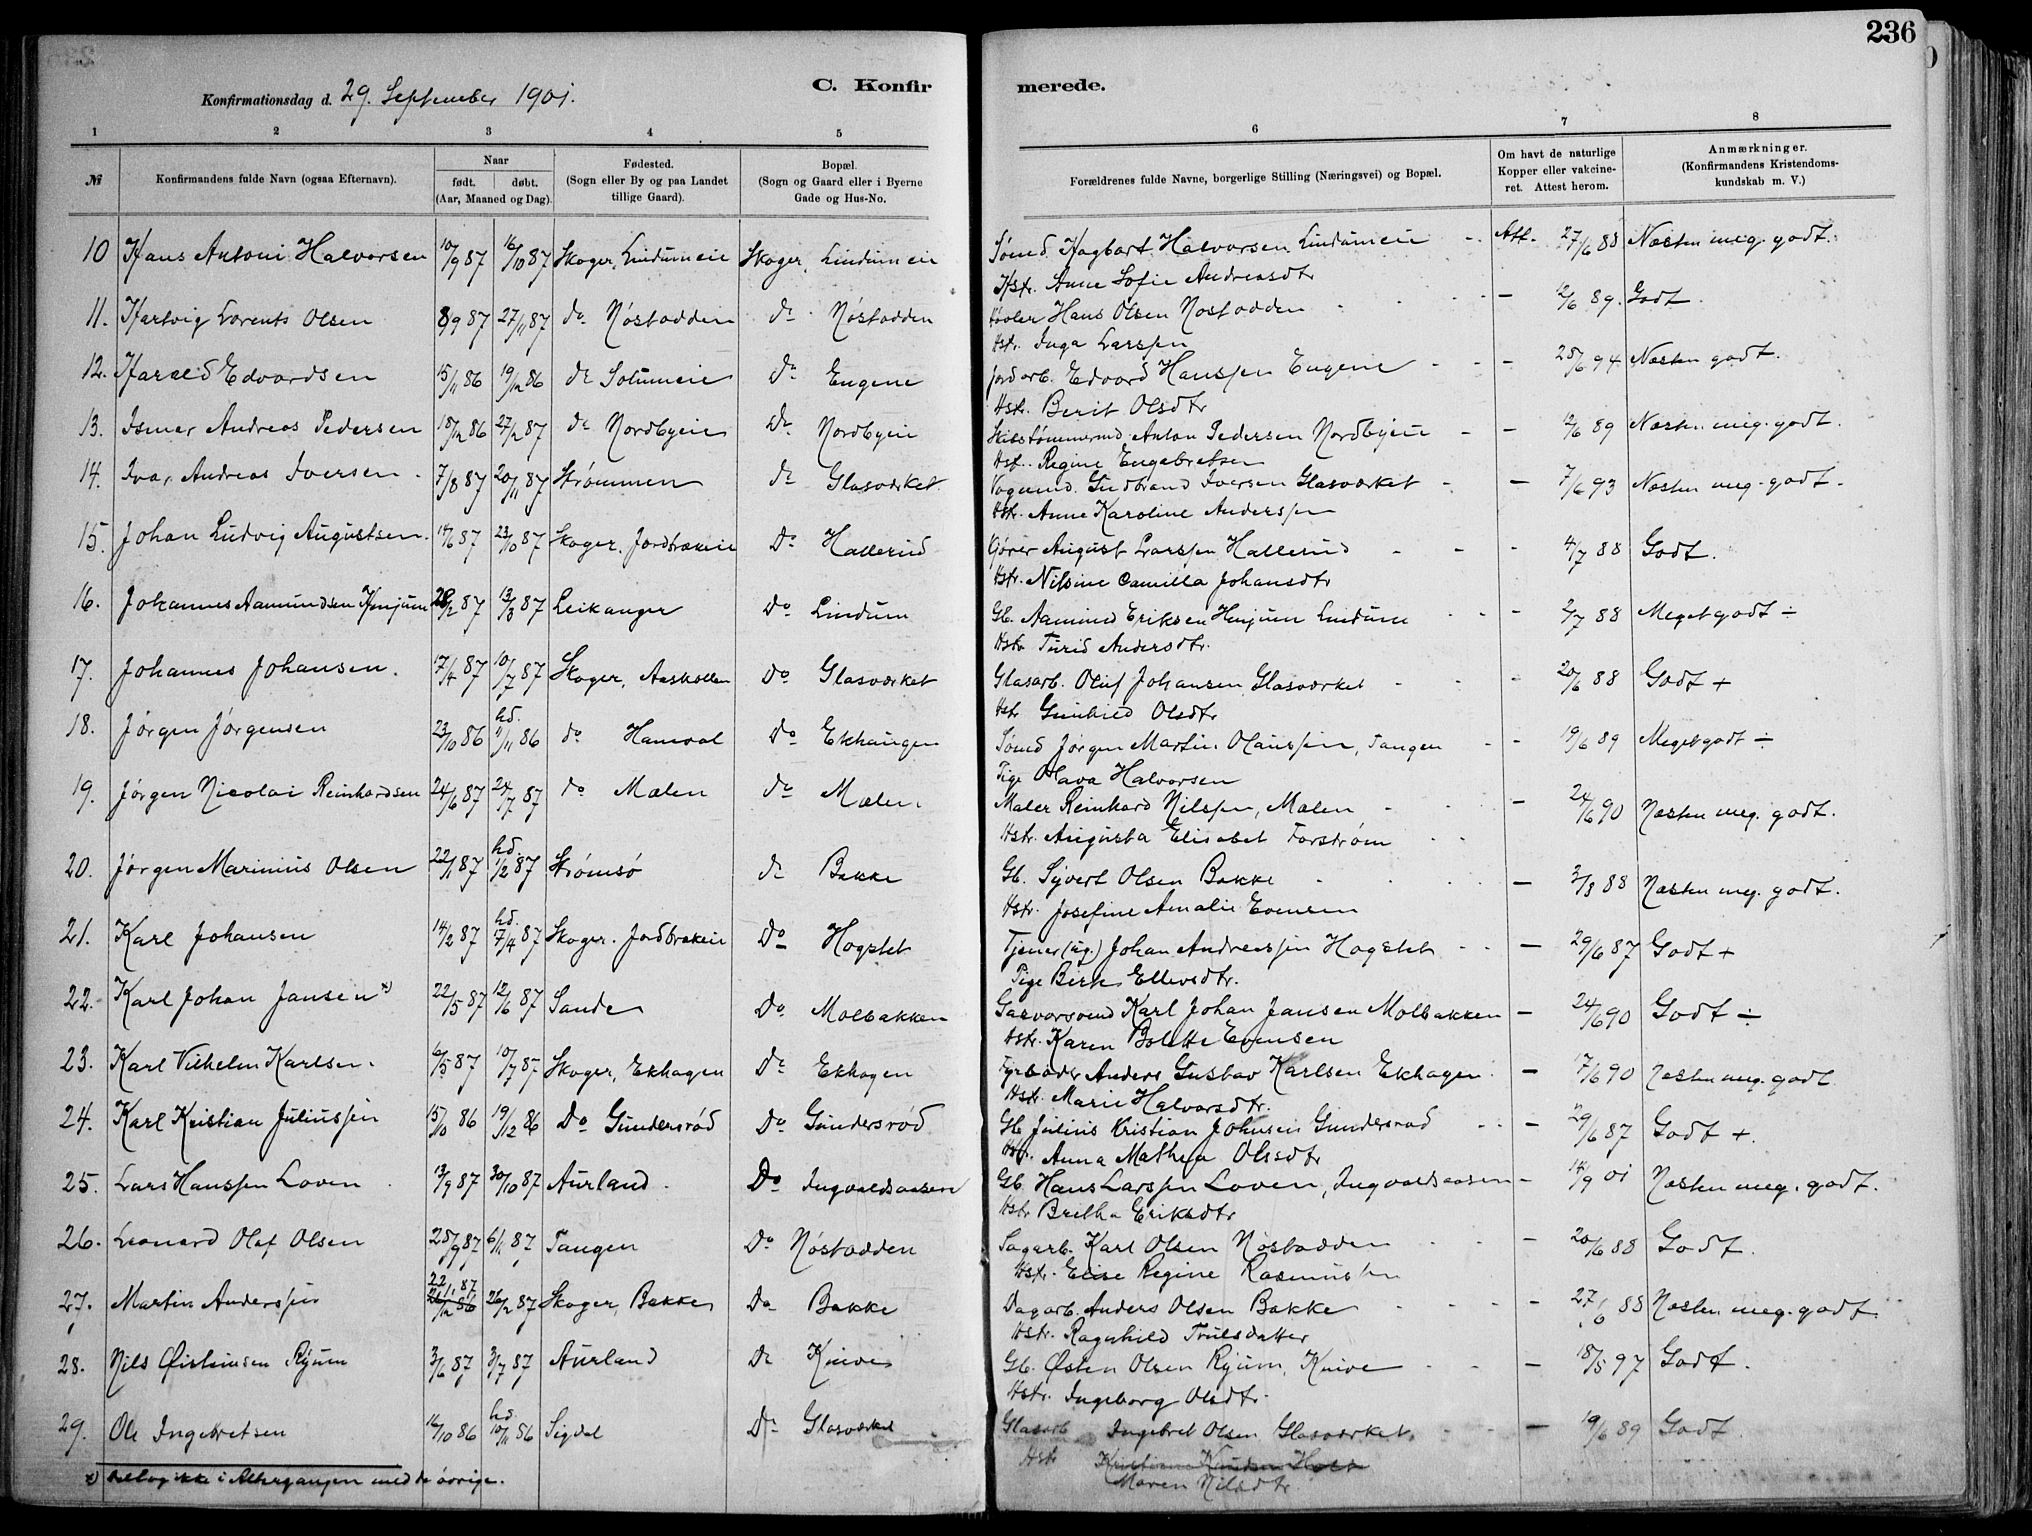 236
Konfirmationsdag d. 29. September 1901.
C. Konfirmerede.
1 2 3 4 5 6 7 8
№ Konfirmandens fulde Navn (ogsaa Efternavn). Naar født. døbt. (Aar, Maaned og Dag). Fødested. (Sogn eller By og paa Landet tillige Gaard). Bopæl. (Sogn og Gaard eller i Byerne Gade og Hus-No. Forældrenes fulde Navne, borgerlige Stilling (Næringsvei) og Bopæl. Om havt de naturlige Kopper eller vakcineret. Attest herom. Anmærkninger. (Konfirmandens Kristendomskundskab m. V.)
10 Hans Antoni Halvorsen 10/9 87 16/10 87 Skoger, Lindumeie Skoger, Lindumeie Sømd. Hagbart Halvorsen Lindumeie - Att. 27/6 88 Næsten meg. godt.
Hst. Anne Sofie Andreasdtr
11. Hartvig Lorents Olsen 8/9 87 27/11 87 do Nøstodden do Nøstodden Høvler Hans Olsen Nøstodden - 12/6 89. Godt.
Hst. Inga Larssen
12. Harald Edvardsen 15/11 86 19/12 86 do Solumeie do Eugene Jordarb. Edvard Hanssen Eugene - 25/6 94 Næsten godt.
Hst. Berit Olsdtr
13. Ismar Andreas Pedersen 18/12 86 27/2 87 do Nordbyeie do Nordbyeie Skibstømmermd. Anton Pedersen Nordbyeie - 12/6 89 Næsten meg. godt.
Hst. Regine Engebretsen
14. Ivar Andreas Iversen 7/8 87 20/11 87 Strømmen do Glasværket Vognmd. Gudbrand Iversen Glasværket - 7/6 93 Næsten meg. godt.
Hst. Anne Karoline Anderssen
15. Johan Ludvig Augustsen. 14/6 87 23/10 87 Skoger. Jordbrækeie Do Hallerud Kjører August Larssen Hallerud - 4/7 88 Godt.
Hst. Nilsine Camilla Johansdtr
16. Johannes Aamundsen Henjum 28/2 87 13/3 87 Leikanger Do Lindum Gb. Aamund Eriksen Henjum Lindum - 2/7 88 Meget godt ÷
Hst Turid Andersdtr.
17. Johannes Johansen. 17/4 87 10/7 87 Skoger, Aaskollen Do Glasværket Glasarb. Oluf Johansen Glasværket - 20/6 88 Godt +
Hst Gunhild Olsdtr
18. Jørgen Jørgensen 23/10 86 hd. 11/11 86 do Hamval Do Ekhaugen Sømd Jørgen Martin Olaussen, Tangen - 19/6 89 Meget godt ÷
Pige Olava Halvorsen
19. Jørgen Nicolai Reinhardsen 24/6 87 24/7 87 do Mælen do Mælen Maler Reinhard Nilssen, Mælen - 24/6 90 Næsten meg. godt.
Hst. Augusta Elisabet Forstrøm
20. Jørgen Marinius Olsen 22/1 87 hd. 1/2 87 Strømsø do Bakke Gb. Syvert Olsen Bakke - 3/8 88 Næsten meg. godt.
Hst. Josefine Amalie Evensen
21. Karl Johansen 14/2 87 hd. 7/4 87 Skoger. Jordbrækeie Do Hogstet Tjener (ug.) Johan Andreassen Hogstet - 29/6 87 Godt +
Pige Ellevsdtr.
22. Karl Johan Jansen x) 22/5 87 12/6 87 Sande Do Molbakken Karl Johan Jansen Molbakken - 24/6 90 Godt ÷
Hst. Karen Bolette Evensen
23. Karl Vilhelm Karlsen. 6/5 87 10/7 87 Skoger, Ekhagen Do Ekhagen Fyrbøder Anders Gustav Karlsen Ekhagen - 17/6 90 Næsten meg. godt
Hst. Marie Halvorsdtr.
24. Karl Kristian Juliussen 15/10 86 19/12 86 Do Gundersrød Do Gundersrød Gb. Julius Kristian Johnsen Gundersrød - 29/6 87 Godt +.
Hst. Anna Mathea Olssdtr
25. Lars Hanssen Loven 13/9 87 30/10 87 Aurland. Do Ingvaldsaasen Gb. Hans Larssen Loven, Ingvaldsaasen - 14/9 01 Næsten meg. godt.
Hst Britha Eriksdtr
26. Leonard Olaf Olsen 25/9 87 6/11 87 Tangen Do Nøstodden Sagarb. Karl Olsen Nøstodden - 20/6 88 Godt.
Hst. Elise Regine Rasmussen
27. Martin Anderssen 22/1 87 26/2 87 Skoger, Bakke Do Bakke Dagarb. Anders Olsen Bakke - 27/6 88 Næsten meg. godt.
Hst. Ragnhild Trulsdatter
28. Nils Øisteinsen Ryum 3/6 87 3/7 87 Aurland Do Knive Gb. Østen Olsen Ryum, Knive - 18/5 97 Godt.
Hst. Ingeborg Olsdtr.
29. Ole Ingebretsen 16/10 86 hd. 10/11 86 Sigdal Do Glasværket Glasarb Ingebret Olsen Glasværket - 19/6 89 Godt
Hst Kristiane Knudsen Holt
Maren Nilsdtr
x) deltog ikke i Altergangen med de øvrige.